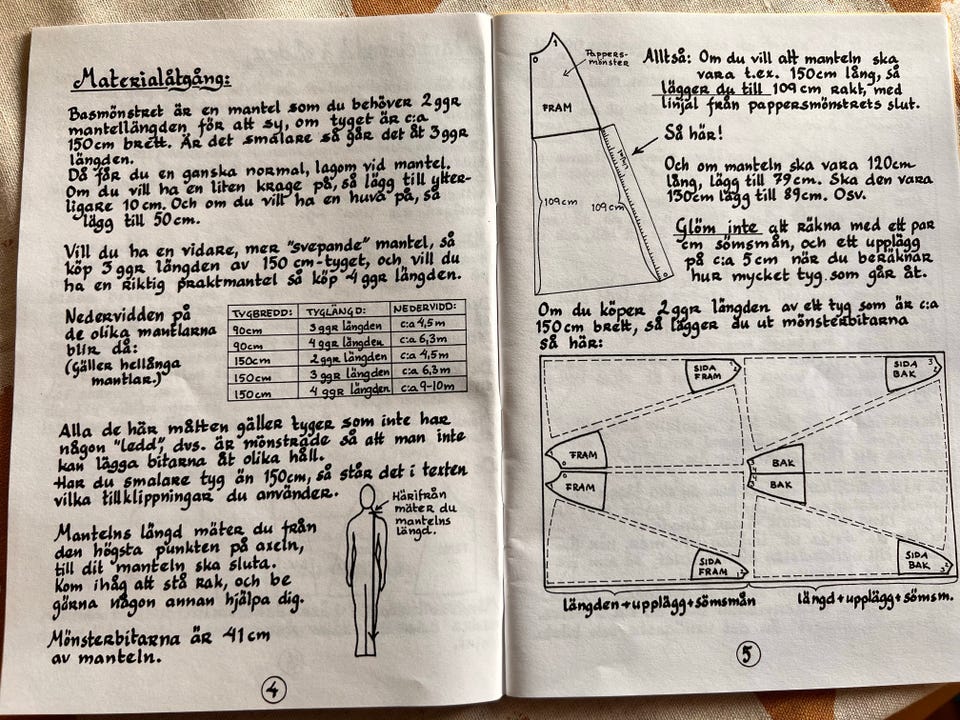 Materialåtgång:
Basmönstret är en mantel som du behöver 2 ggr
mantellängden för att sy, om tyget är c:a
150cm brett. Är det smalare så går det åt 3 ggr
längden.
Då får du en ganska normal, lagom vid mantel.
Om du vill ha en liten krage på, så lägg till ytter-
ligare 10 cm. Och om du vill ha en huva på, så
lägg till 50 cm.
Vill du ha en vidare, mer "svepande" mantel, så
köp 3 ggr längden av 150 cm-tyget, och vill du
ha en riktig praktmantel så köp 4 ggr längden.
Nedervidden på
de olika mantlarna
blir då:
(Gäller hellånga
mantlar.)
TYGBREDD: TYGLÄNGD: NEDERVIDD:
90cm 3 ggr längden c:a 4,5 m
90cm 4 ggr längden c:a 6,3 m
150cm 2 ggr längden c:a 4,5 m
150cm 3 ggr längden c:a 6,3 m
150cm 4 ggr längden c:a 9-10 m
Alla de här måtten gäller tyger som inte har
någon "ledd", dvs. är mönstrade så att man inte
kan lägga bitarna åt olika håll.
Har du smalare tyg än 150cm, så står det i texten
vilka tillklippningar du använder.
Härifrån
mäter du
mantelns
längd.
Mantelns längd mäter du från
den högsta punkten på axeln,
till dit manteln ska sluta.
Kom ihåg att stå rak, och be
gärna någon annan hjälpa dig.
Mönsterbitarna är 41 cm
av manteln.
4
1
Pappers-
mönster
FRAM
Linjal
109 cm
109 cm
Alltså: Om du vill att manteln ska
vara t.ex. 150cm lång, så
lägger du till 109 cm rakt, med
linjal från pappersmönstrets slut.
Så här!
Och om manteln ska vara 120cm
lång, lägg till 79 cm. Ska den vara
130cm lägg till 89cm. Osv.
Glöm inte att räkna med ett par
cm sömsmån, och ett upplägg
på c:a 5 cm när du beräknar
hur mycket tyg som går åt.
Om du köper 2 ggr längden av ett tyg som är c:a
150 cm brett, så lägger du ut mönsterbitarna
så här:
SIDA
FRAM
SIDA
BAK
FRAM
FRAM
BAK
BAK
SIDA
FRAM
SIDA
BAK
längden+upplägg+sömsmån
längd+upplägg+sömsm.
5